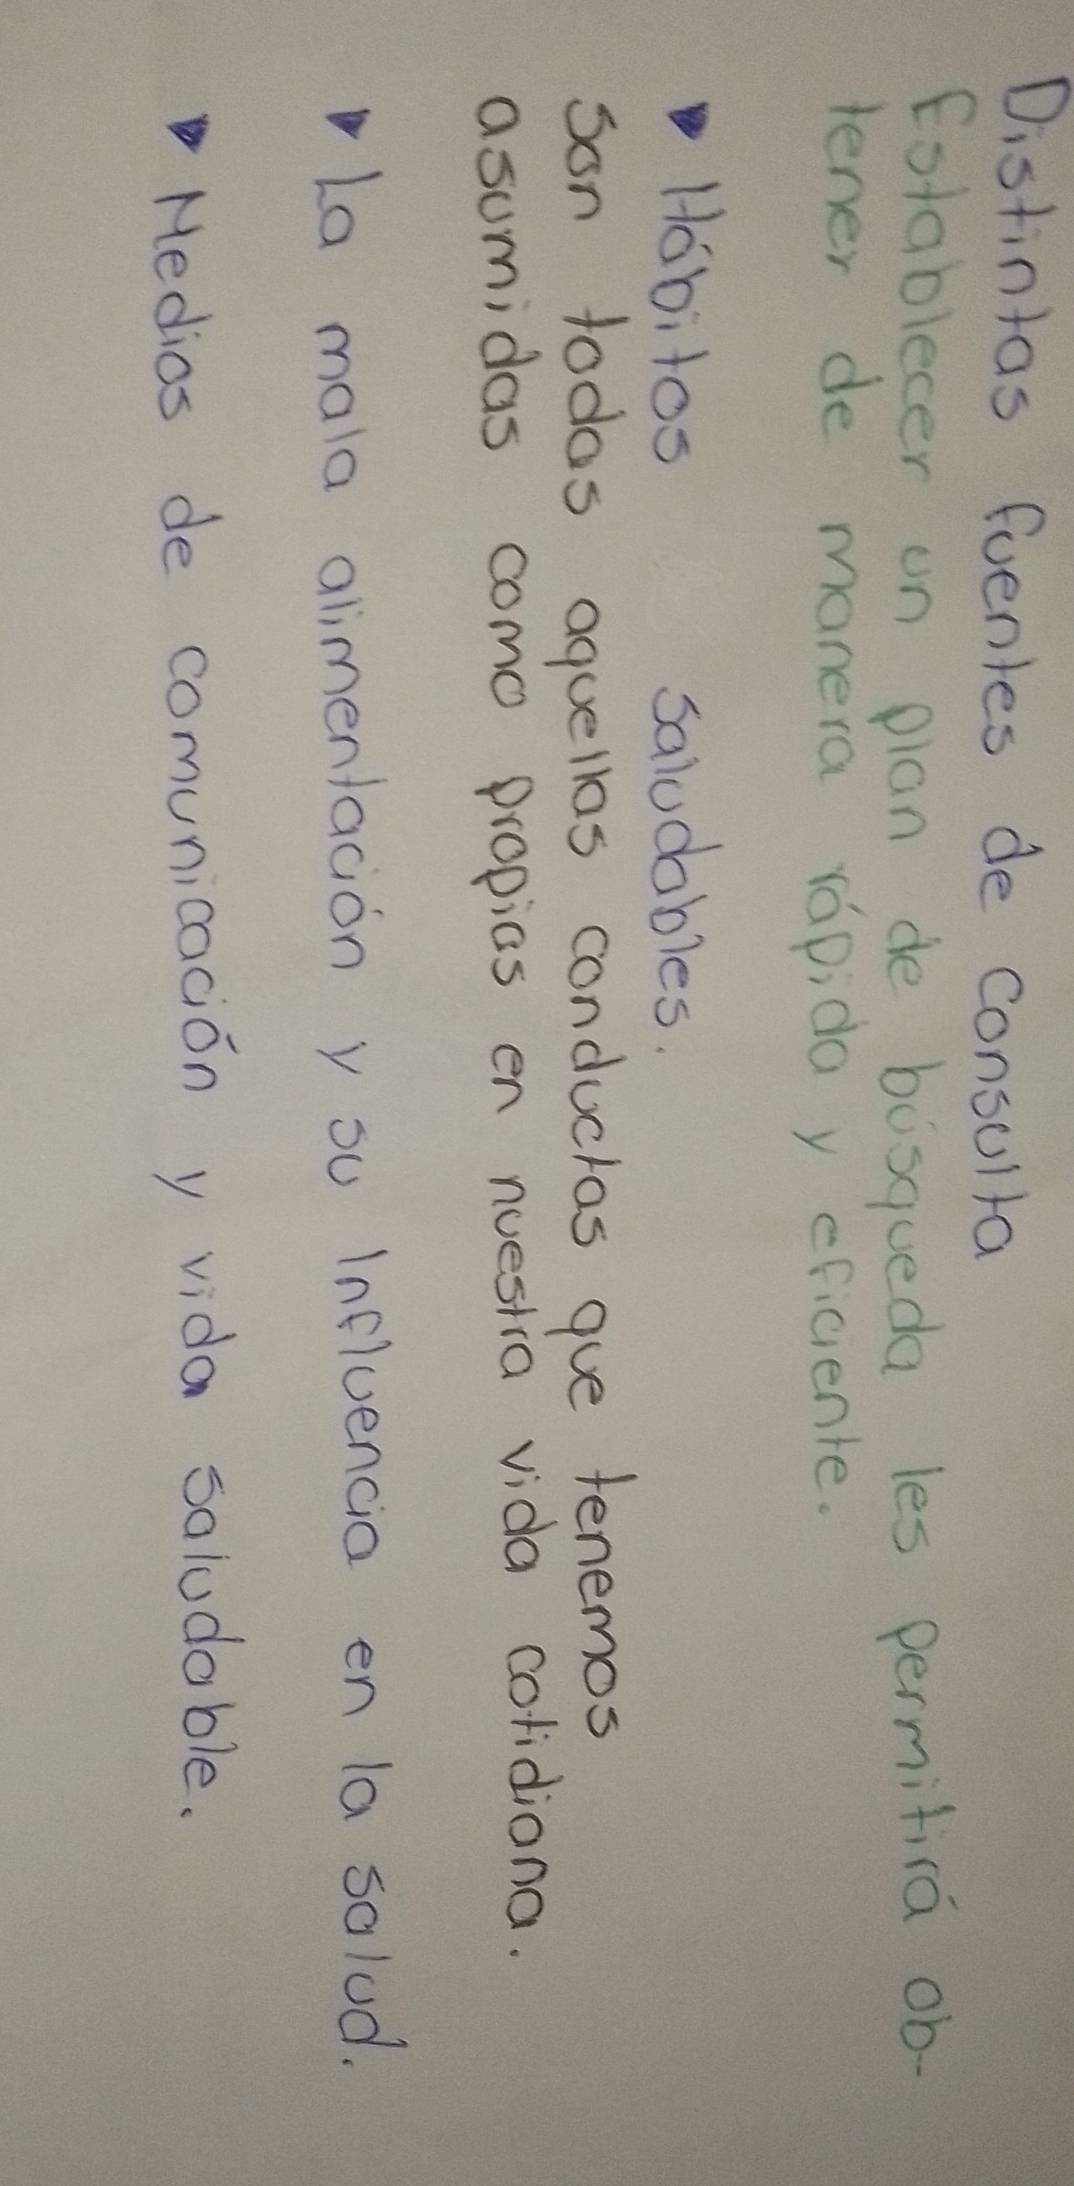 Distintas fuentes de consulta
Establecer un plan de búsqueda les permitirá ob-
tener de manera rápida y eficiente.
Hábitos saludables.
Son todas aquellas conductas que tenemos
asumidas como propias en nuestra vida cotidiana.
La mala alimentación y su Influencia en la salud.
Medios de comunicación y vida saludable.